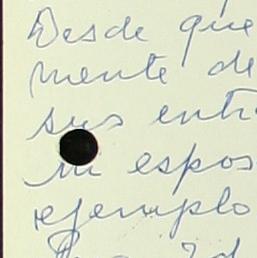 Desde que
mente de
sus entr
mi espos
ejemplo